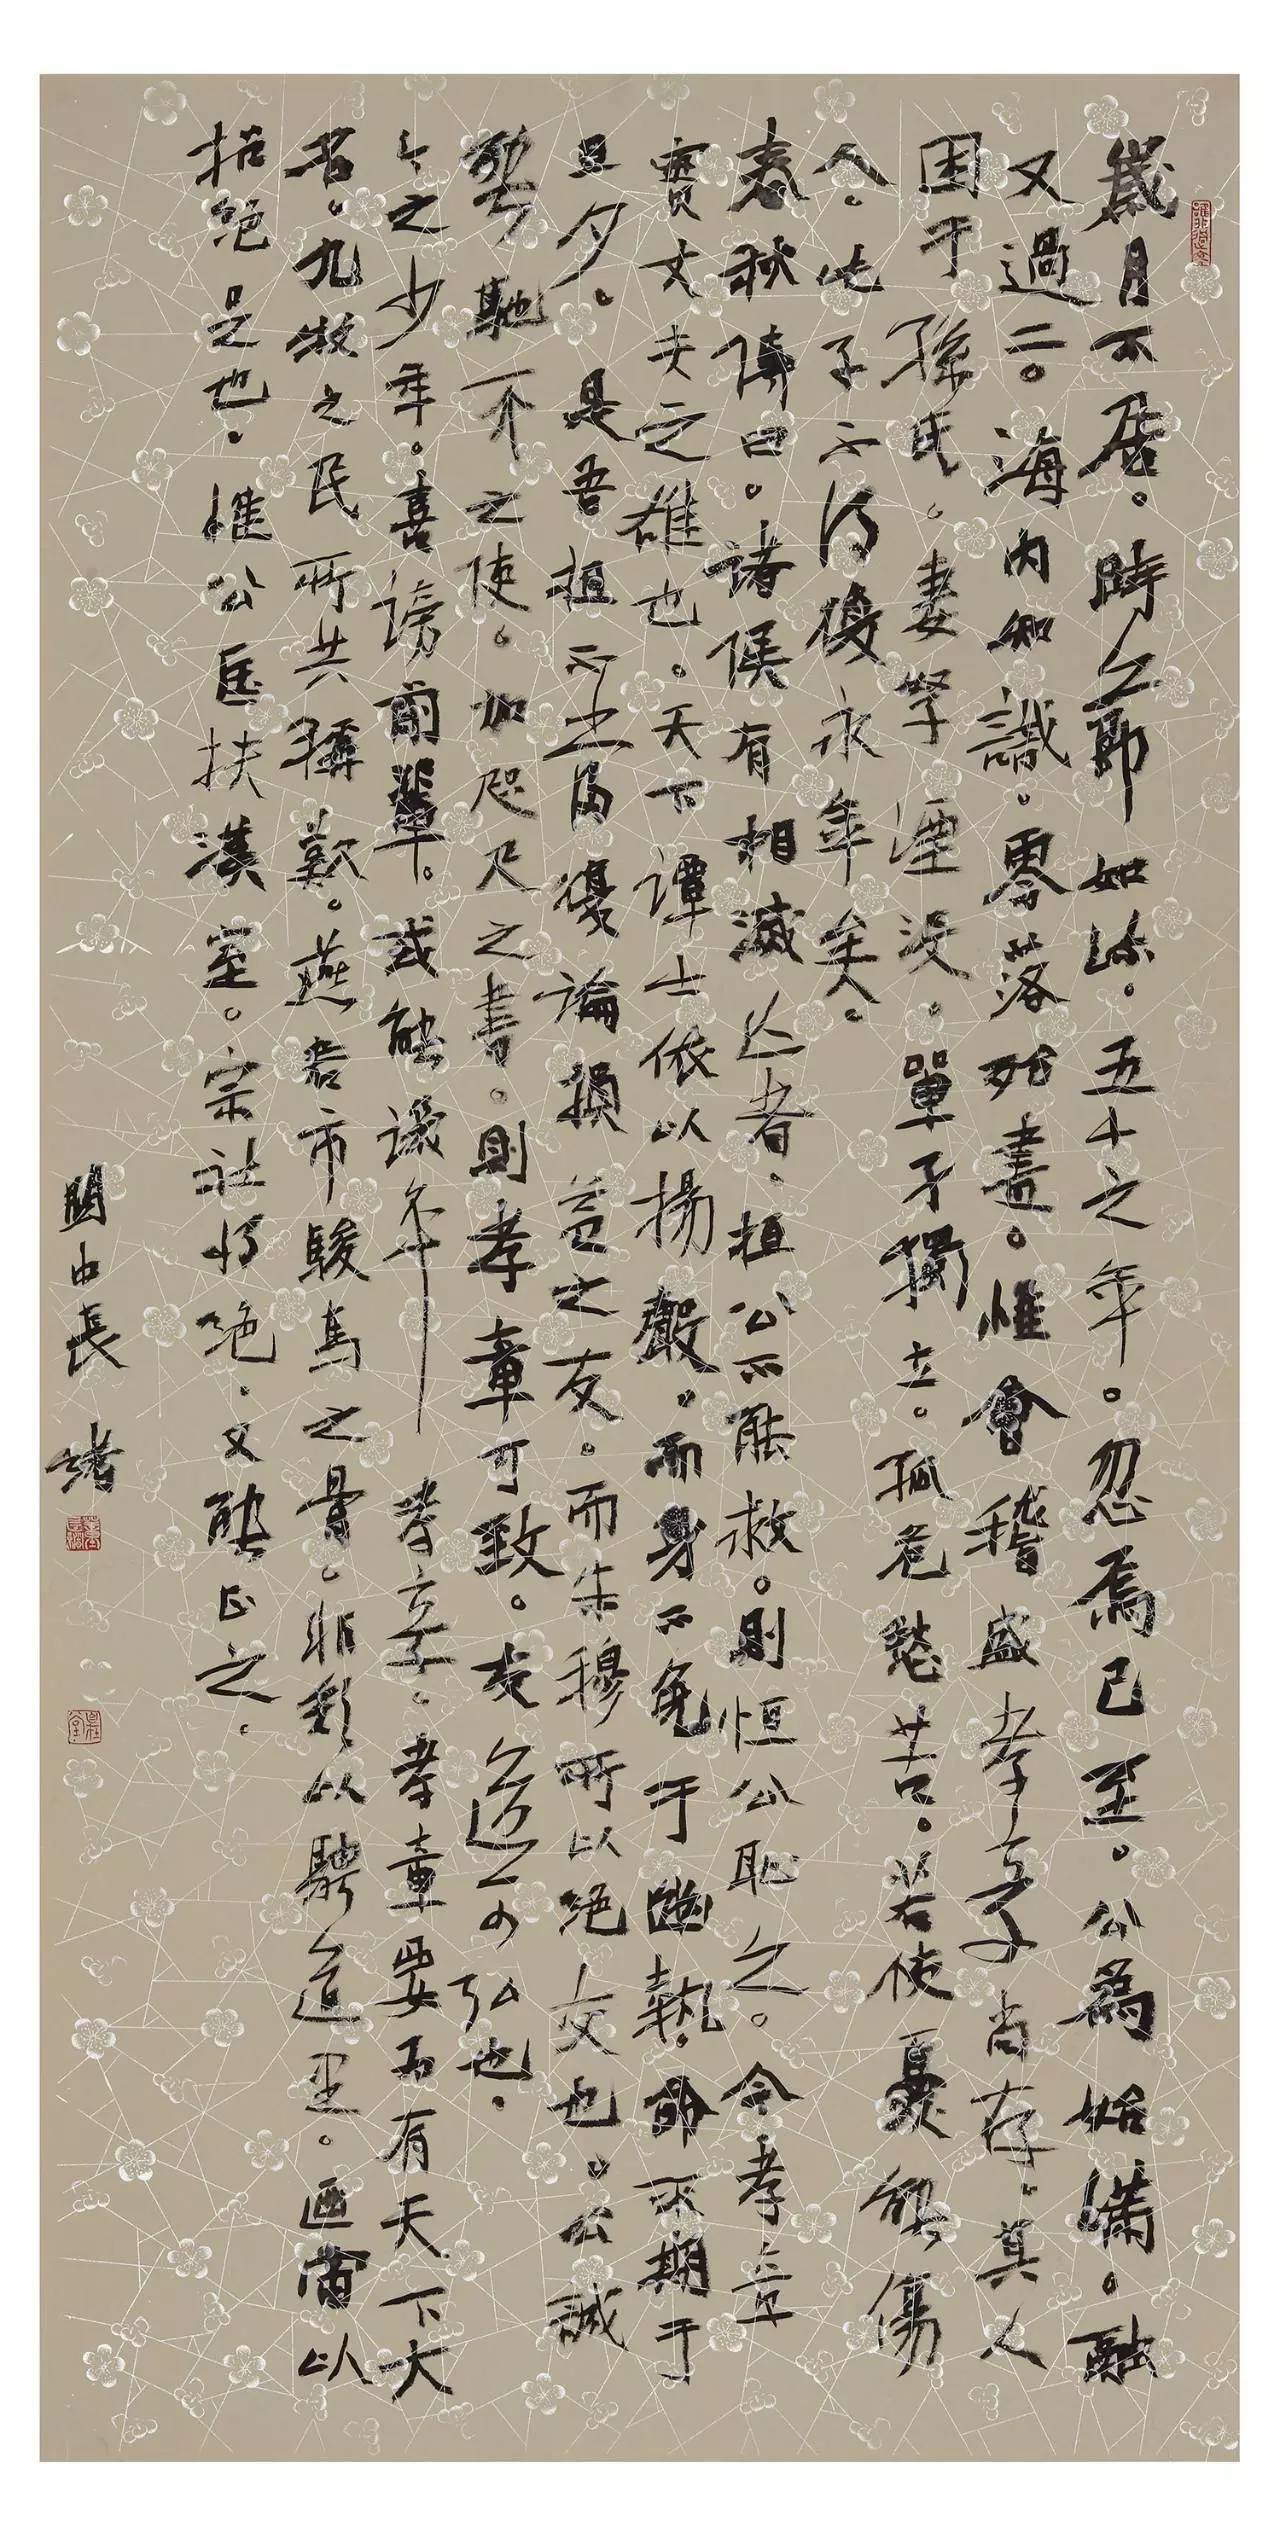 歲月不居。時之節如流。五十之年。忽焉已至。公為始滿。融
又過二。海內知識。零落殆盡。惟會稽盛孝章尚存。其人
困于孫氏。妻孥湮没。單孑獨立。孤危愁苦。若使憂能傷
人。此子不得復永年矣。
春秋傳曰。諸侯有相滅亡者。桓公不能救。則恒公恥之。今孝章
實丈夫之雄也。天下譚士依以揚聲。而身不免于幽執。命不期于
旦夕。是吾祖不當復論損益之友。而朱穆所以絕交也。公誠
能馳一不之使。加咫尺之書。則孝章可致。友道可弘也。
今之少年。喜謗前輩。或能譏平孝章。孝章要為有天下大
名。九牧之民所共稱歎。燕君市駿馬之骨。非欲以騁道里。迺當以
招絕足也。惟公匡扶漢室。宗社將絕。又能正之。